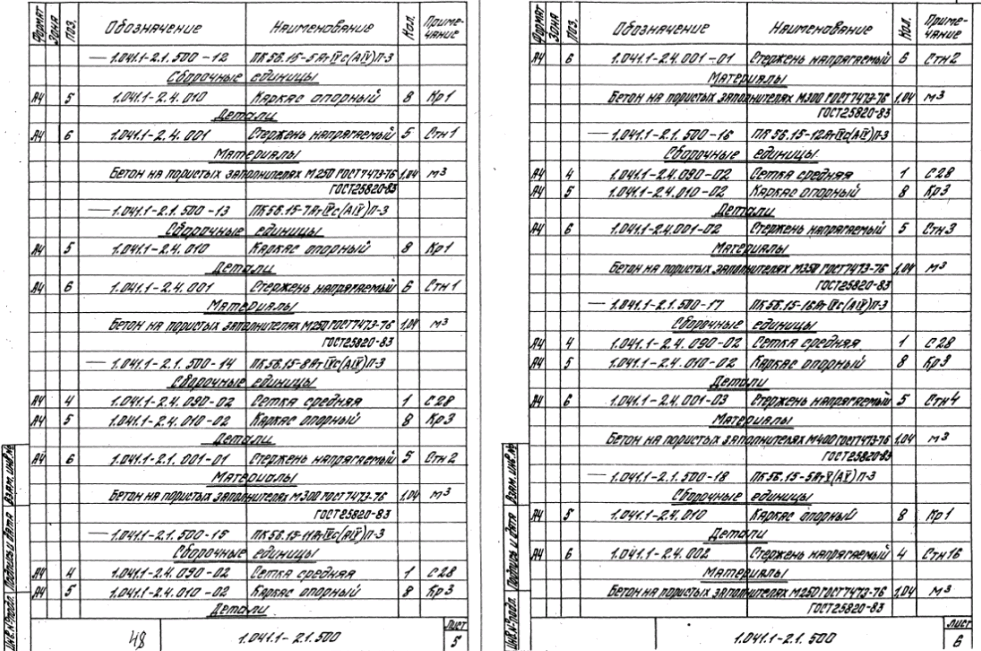 Формат Зона Поз. Обозначение Наименование Кол. Приме-
чание
— 1.041.1-2.1.500-12 ПК56.15-5АтIVс(АIV)П-3
Сборочные единицы
А4 5 1.041.1-2.4.010 Каркас опорный 8 Кр1
Детали
А4 6 1.041.1-2.4.001 Стержень напрягаемый 5 Стн1
Материалы
Бетон на пористых заполнителях М250 ГОСТ7473-76 1,04 м³
ГОСТ25820-83
— 1.041.1-2.1.500-13 ПК56.15-7АтIVс(АIV)П-3
Сборочные единицы
А4 5 1.041.1-2.4.010 Каркас опорный 8 Кр1
Детали
А4 6 1.041.1-2.4.001 Стержень напрягаемый 6 Стн1
Материалы
Бетон на пористых заполнителях М250 ГОСТ7473-76 1,04 м³
ГОСТ25820-83
— 1.041.1-2.1.500-14 ПК56.15-8АтIVс(АIV)П-3
Сборочные единицы
А4 4 1.041.1-2.4.090-02 Сетка средняя 1 С28
А4 5 1.041.1-2.4.010-02 Каркас опорный 8 Кр3
Детали
А4 6 1.041.1-2.1.001-01 Стержень напрягаемый 5 Стн2
Материалы
Бетон на пористых заполнителях М300 ГОСТ7473-76 1,04 м³
ГОСТ25820-83
— 1.041.1-2.1.500-15 ПК56.15-11АтIVс(АIV)П-3
Сборочные единицы
А4 4 1.041.1-2.4.090-02 Сетка средняя 1 С28
А4 5 1.041.1-2.4.010-02 Каркас опорный 8 Кр3
Детали
Инв.№подл. Подпись и дата Взам.инв.№
48 1.041.1-2.1.500 Лист
5
Формат Зона Поз. Обозначение Наименование Кол. Приме-
чание
А4 6 1.041.1-2.4.001-01 Стержень напрягаемый 6 Стн2
Материалы
Бетон на пористых заполнителях М300 ГОСТ7473-76 1,04 м³
ГОСТ25820-83
— 1.041.1-2.1.500-16 ПК56.15-12АтIVс(АIV)П-3
Сборочные единицы
А4 4 1.041.1-2.4.090-02 Сетка средняя 1 С28
А4 5 1.041.1-2.4.010-02 Каркас опорный 8 Кр3
Детали
А4 6 1.041.1-2.4.001-02 Стержень напрягаемый 5 Стн3
Материалы
Бетон на пористых заполнителях М350 ГОСТ7473-76 1,04 м³
ГОСТ25820-83
— 1.041.1-2.1.500-17 ПК56.15-16АтIVс(АIV)П-3
Сборочные единицы
А4 4 1.041.1-2.4.090-02 Сетка средняя 1 С28
А4 5 1.041.1-2.4.010-02 Каркас опорный 8 Кр3
Детали
А4 6 1.041.1-2.4.001-03 Стержень напрягаемый 5 Стн4
Материалы
Бетон на пористых заполнителях М400 ГОСТ7473-76 1,04 м³
ГОСТ25820-83
— 1.041.1-2.1.500-18 ПК56.15-5АтV(АV)П-3
Сборочные единицы
А4 5 1.041.1-2.4.010 Каркас опорный 8 Кр1
Детали
А4 6 1.041.1-2.4.002 Стержень напрягаемый 4 Стн16
Материалы
Бетон на пористых заполнителях М250 ГОСТ7473-76 1,04 м³
ГОСТ25820-83
Инв.№подл. Подпись и дата Взам.инв.№
1.041.1-2.1.500 Лист
6